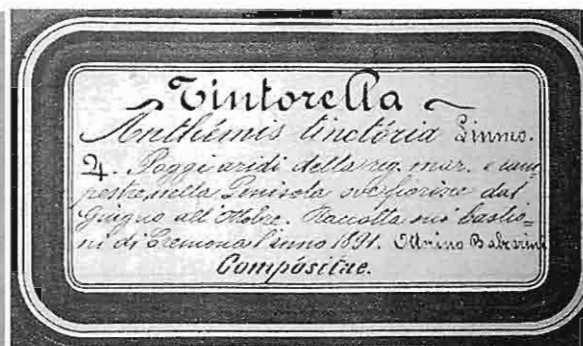 Tintorella
Anthémis tinctória Linneo.
♃. Poggi aridi della reg. mar. e cam=
pestre nella Penisola ove fiorisce dal
Giugno all'Ottobre. Raccolta sui bastio=
ni di Cremona l'anno 1891.
Compósitae.